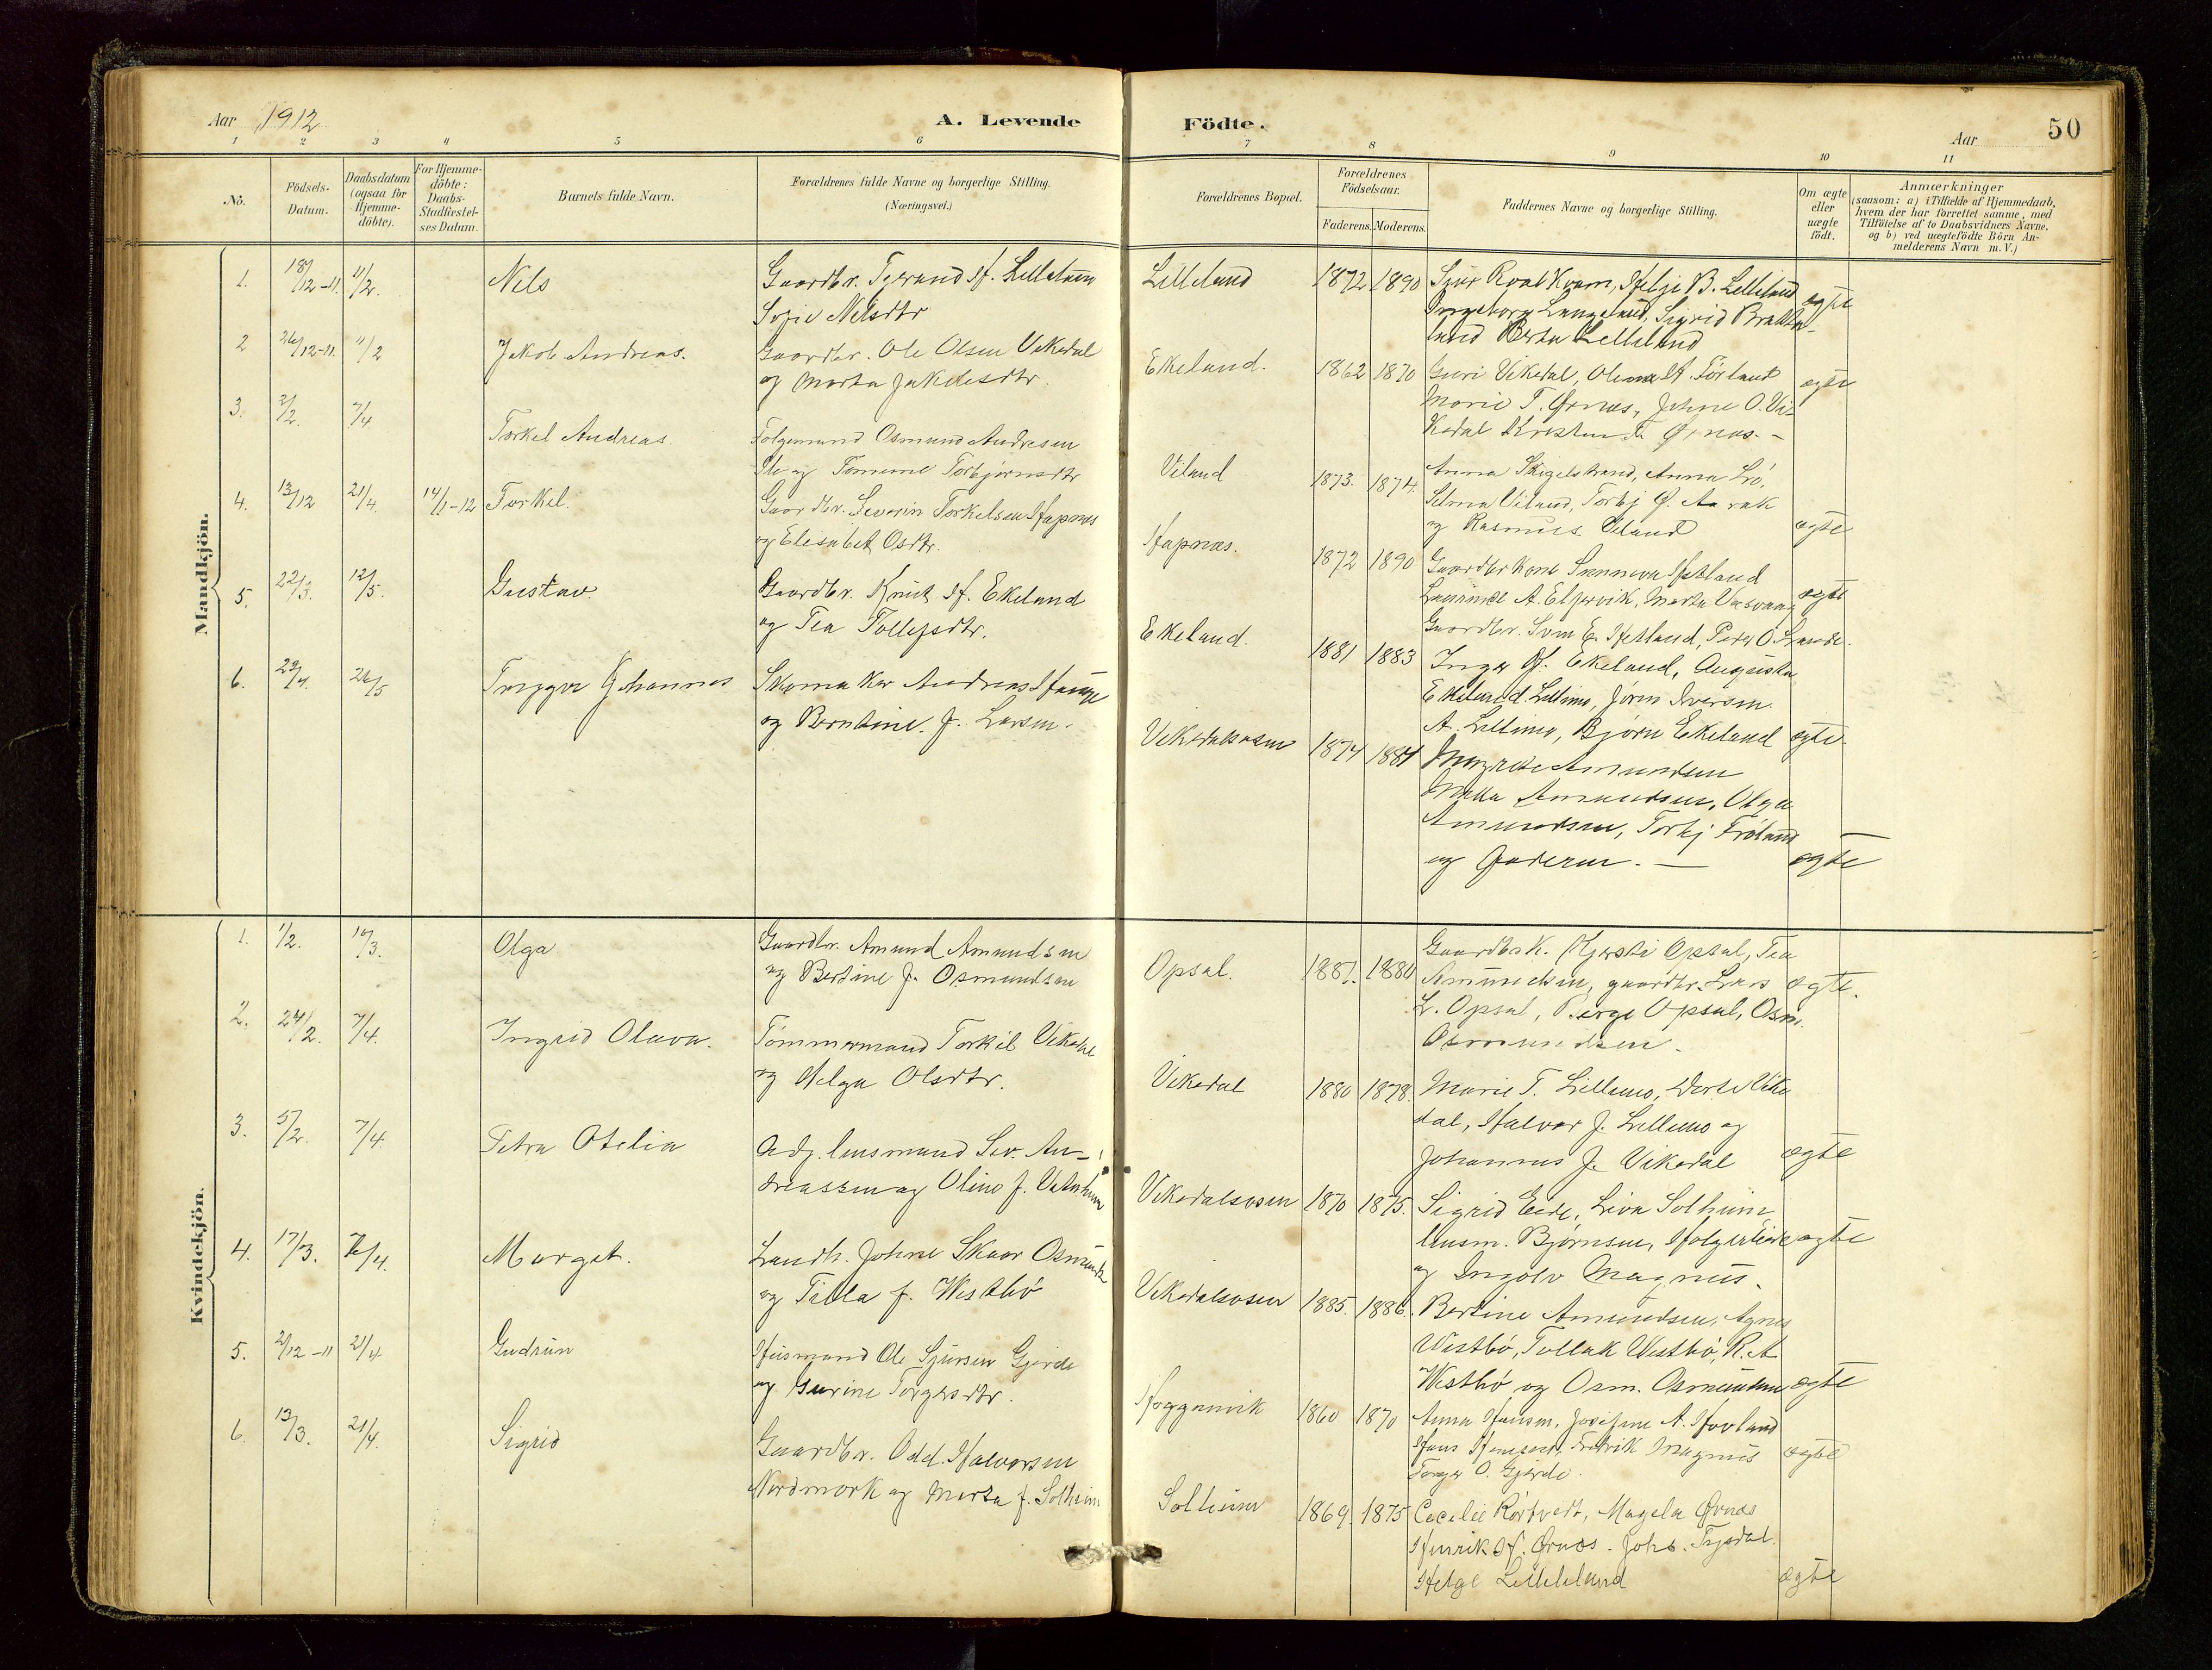 Aar 1912
A. Levende Födte.
Aar
50
1 2 3 4 5 6 7 8 9 10 11
No.
Födsels-Datum.
Daabsdatum (ogsaa for Hjemme-döbte).
For Hjemme-döbte: Daabs-Stadfæstel-ses Datum.
Barnets fulde Navn.
Forældrenes fulde Navne og borgerlige Stilling.
(Næringsvei.)
Forældrenes Bopæl.
Forældrenes Födselsaar.
Faderens. Moderens.
Faddernes Navne og borgerlige Stilling.
Om ægte eller uægte födt.
Anmærkninger
(saasom: a) i Tilfælde af Hjemmedaab,
hvem der har forrettet samme, med
Tilföielse af to Daabsvidners Navne,
og b) ved uægtefödte Börn An-
melderens Navn m. V.)
Mandkjön.
1. 18/12-11. 11/2. Nils
Gaardbr. H. Lilleland
Sofie Nilsdtr
Lilleland 1872 1890
Kvam, Helje B. Lilleland
Ingeborg Langeland, Sigrid
land Berta Lilleland
ægte
2 26/12-11. 11/2 Jakob Andreas.
Gaardbr. Ole Olsen Vikedal
og Marta Jakobsdtr.
Ekeland. 1862 1870
Guri Vikedal, Olena
Marie T. Ørnes, Johne O. Vi-
kedal Ørnes. -
ægte
3. 2/2. 7/4 Torkel Andreas.
Osmund Andresen
og Torbjørnsdtr
Viland 1873. 1874.
Anna Skigelstrand, Anna
Selma Viland, Torbj Ø. Aarak
og Rasmus Viland
ægte
4. 13/12 21/4. 14/1-12 Torkel
Gaardbr. Severin Torkelsen Hapnes
og Elisabet Osdtr.
Hapnes. 1872 1890
Gaardbrkone Sunneva Hetland
A. Eljervik, Marta
Gaardbr. Sven E. Hetland, Peder O.
ægte
5. 22/3. 12/5. Gustav.
Gaardbr. Knut H. Ekeland
og Tea Tollefsdtr.
Ekeland. 1881 1883
Inger H. Ekeland, Augusta
Ekeland Jørin Iversen.
A. Bjørn Ekeland
ægte
6. 29/4. 26/5 Tryggve Johannes
Skomaker Andreas Hauge
og Berntine f. Larsen.
Vikedalsosen 1874 1884
Amundsen
Amundsen, Olga
Amundsen, Torbj Frøland
og Faderen. —
ægte
Kvindekjön.
1. 1/2. 10/3. Olga
Gaardbr. Amund Amundsen
og Bertine f. Osmundsen
Opsal. 1881. 1880
Gaardbrk. Kjersti Opsal, Tea
Amundsen, gaardbr. Lars
L. Opsal, Børge Opsal, Osm.
Osmundsen.
ægte.
2. 24/2. 7/4. Ingrid Olava.
Tömmermand Torkil Vikedal
og Helga Olsdtr.
Vikedal 1880 1878.
Marie T. Dorte Vike
dal, Halvor J. og
Johannes J. Vikedal
ægte
3. 5/2. 7/4. Petra Otelia
Adj. lensmand Sev. An-
dreassen og Oline f.
Vikedalsosen 1870 1875.
Sigrid Eide, Liva Solheim
lensm. Bjørnsen, Holger Eide
og Ingolv Magnus.
ægte
4. 17/3. /4. Margit.
Landh. Johne Skaar
og Tilla f. Westbö
Vikedalsosen 1885. 1886.
Bertine Amundsen, Agnes
Westbö, Tollak Westbö, R. A
Westbö og Osm. Osmundsen
ægte
5. 2/12-11 21/4. Gudrun
Husmand Ole Sjursen Gjerde
og Gurine Torgersdtr.
Hogganvik 1860 1870
Anna Hansen, Josefine A. Hovland
Hans Fredrik Magnus
Torger O. Gjerde.
ægte
6. 13/3. 21/4. Sigrid
Gaardbr. Odd. Halvorsen
Nordmork og Marta f. Solheim
Solheim 1869. 1875
Cecelie Rörtvedt, Magela Ørnes
Henrik H. Ørnes. Johs. Tysdal.
Helge Lilleland
ægte